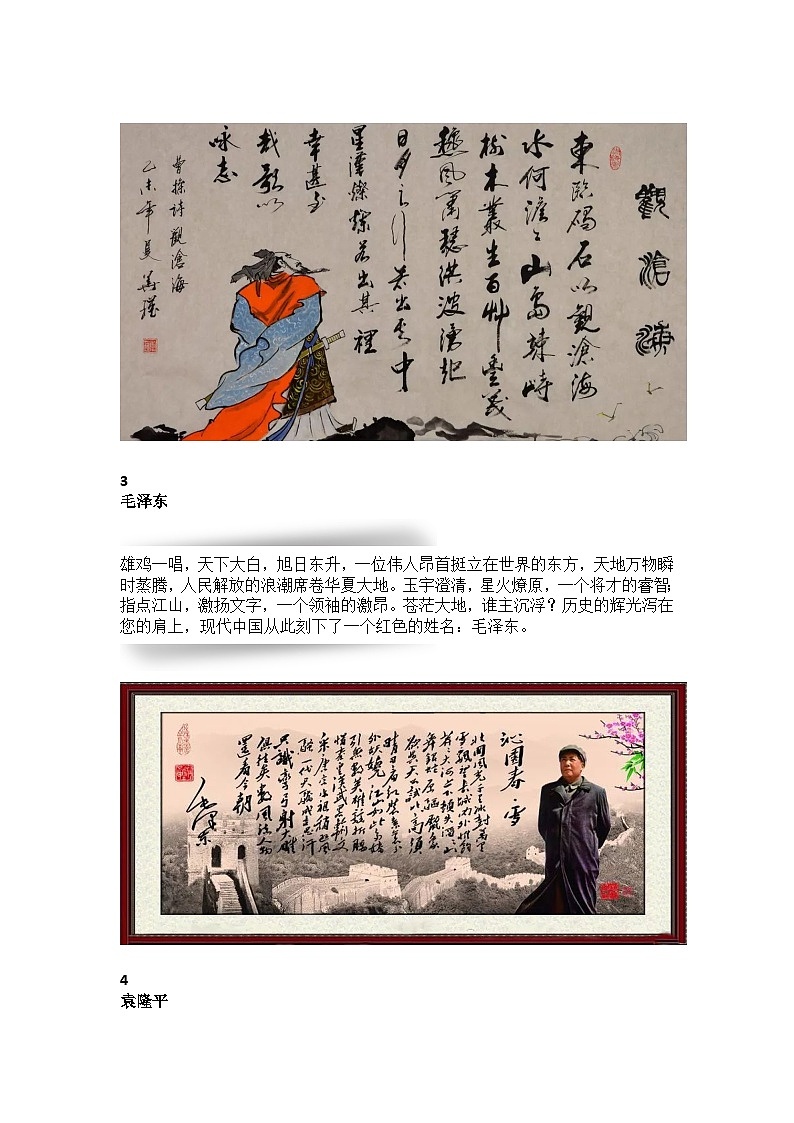 觀滄海
東臨碣石以觀滄海
水何澹々山島竦峙
樹木叢生百艸豐茂
秋風蕭瑟洪波湧起
日月之行若出其中
星漢燦爛若出其裡
幸甚至
哉歌以
咏志
曹操詩觀滄海
乙未年夏
3
毛泽东
雄鸡一唱，天下大白，旭日东升，一位伟人昂首挺立在世界的东方，天地万物瞬
时蒸腾，人民解放的浪潮席卷华夏大地。玉宇澄清，星火燎原，一个将才的睿智；
指点江山，激扬文字，一个领袖的激昂。苍茫大地，谁主沉浮？历史的辉光泻在
您的肩上，现代中国从此刻下了一个红色的姓名：毛泽东。
沁園春·雪
北國風光千里冰封萬里
雪飄望長城內外惟餘
莽莽大河上下頓失滔滔山
舞銀蛇原馳蠟象
欲與天公試比高須
晴日看紅裝素裹分
外妖嬈江山如此多嬌
引無數英雄競折腰
惜秦皇漢武略輸文
采唐宗宋祖稍遜風
騷一代天驕成吉思汗
只識彎弓射大雕
俱往矣數風流人物
還看今朝
毛澤東
4
袁隆平